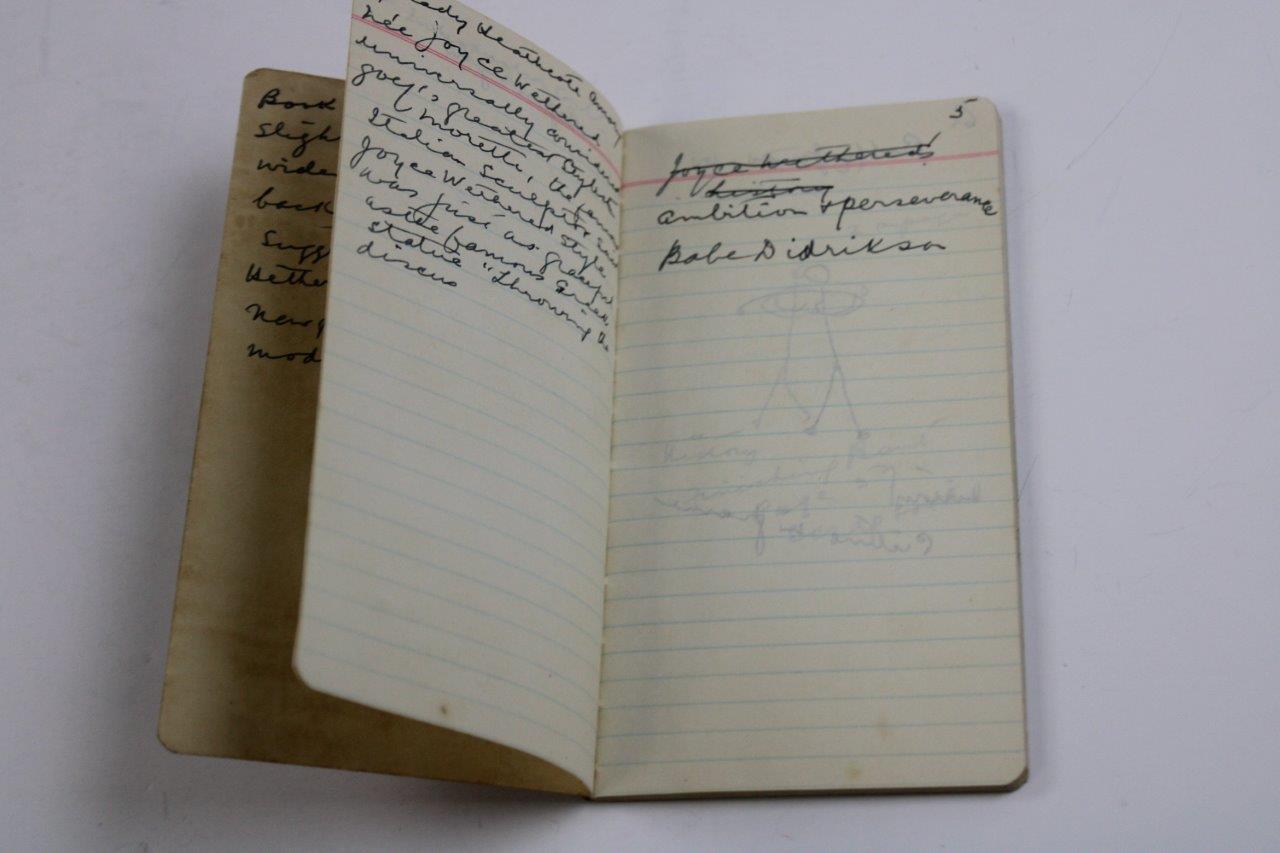 Book
Sligh
wide
back
Sugg
Bette
New
mod
Lady Heathcote Amory
née Joyce Wethered
universally considered
golf's greatest stylist
Moretti, the famous
Italian Sculptor said
Joyce Wethered style
was just as graceful
as the famous Greek
statue "Throwing the
discus
5
Joyce Wethered's
history
ambition & perseverance
Babe Didrikson